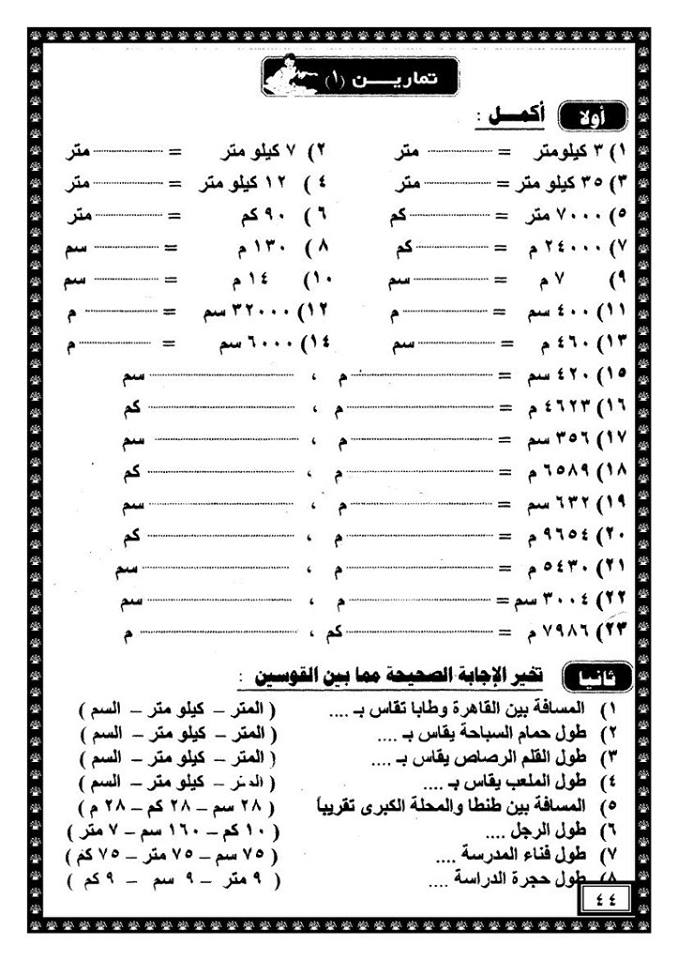 تمارين (١)
أولا أكمل :
١) ٣ كيلومتر = ............ متر ٢) ٧ كيلو متر = ............ متر
٣) ٣٥ كيلو متر = ............ متر ٤) ١٢ كيلو متر = ............ متر
٥) ٧٠٠٠ متر = ............ كم ٦) ٩٠ كم = ............ متر
٧) ٢٤٠٠٠ م = ............ كم ٨) ١٣٠ م = ............ سم
٩) ٧ م = ............ سم ١٠) ١٤ م = ............ سم
١١) ٤٠٠ سم = ............ م ١٢) ٣٢٠٠٠ سم = ............ م
١٣) ٤٦٠ م = ............ سم ١٤) ٦٠٠٠ سم = ............ م
١٥) ٤٢٠ سم = ............ م ، ............ سم
١٦) ٤٦٢٣ م = ............ م ، ............ كم
١٧) ٣٥٦ سم = ............ م ، ............ سم
١٨) ٦٥٨٩ م = ............ م ، ............ كم
١٩) ٦٣٢ سم = ............ م ، ............ سم
٢٠) ٩٦٥٤ م = ............ م ، ............ كم
٢١) ٥٤٣٠ م = ............ م ، ............ سم
٢٢) ٣٠٠٤ سم = ............ م ، ............ سم
٢٣) ٧٩٨٦ م = ............ كم ، ............ م
ثانيا تخير الإجابة الصحيحة مما بين القوسين :
١) المسافة بين القاهرة وطابا تقاس بـ .... ( المتر – كيلو متر – السم )
٢) طول حمام السباحة يقاس بـ .... ( المتر – كيلو متر – السم )
٣) طول القلم الرصاص يقاس بـ .... ( المتر – كيلو متر – السم )
٤) طول الملعب يقاس بـ .... ( المتر – كيلو متر – السم )
٥) المسافة بين طنطا والمحلة الكبرى تقريباً ( ٢٨ سم – ٢٨ كم – ٢٨ م )
٦) طول الرجل .... ( ١٠ كم – ١٦٠ سم – ٧ متر )
٧) طول فناء المدرسة .... ( ٧٥ سم – ٧٥ متر – ٧٥ كم )
٨) طول حجرة الدراسة .... ( ٩ متر – ٩ سم – ٩ كم )
٤٤